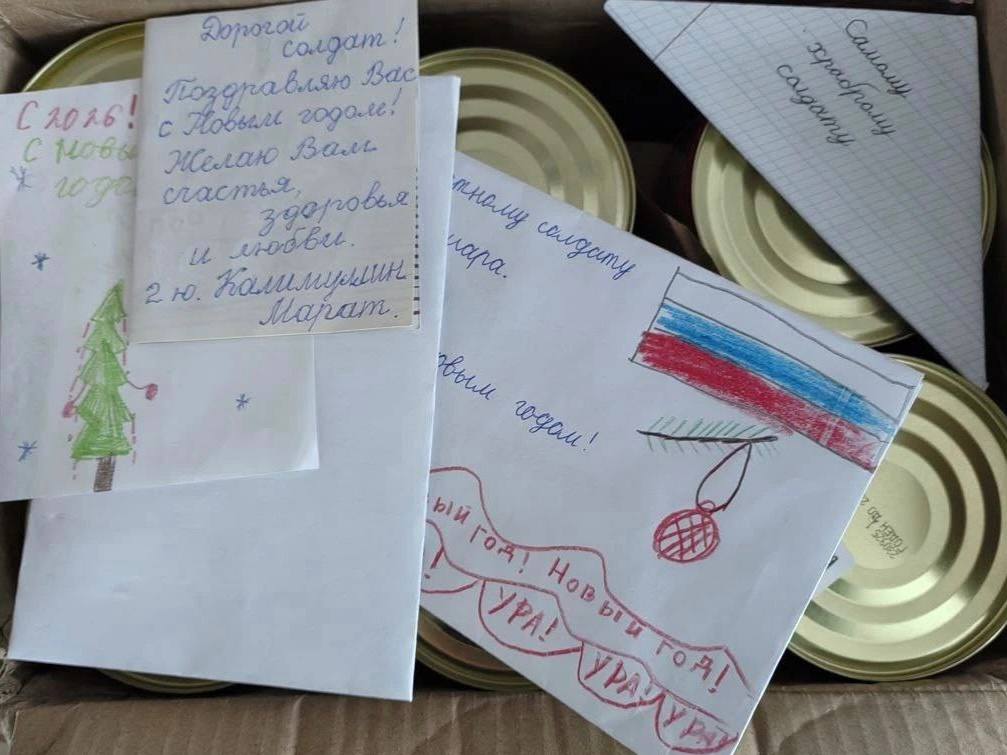 С 2026!
С Новы
года
Дорогой
солдат!
Поздравляю Вас
с Новым годом!
Желаю Вам
счастья,
здоровья
и любви.
2 ю. Калимуллин
Марат.
Самому
храброму
солдату
тному солдату
мара.
овым годом!
ый год! Новый год!
!
УРА!
УРА!
УРА